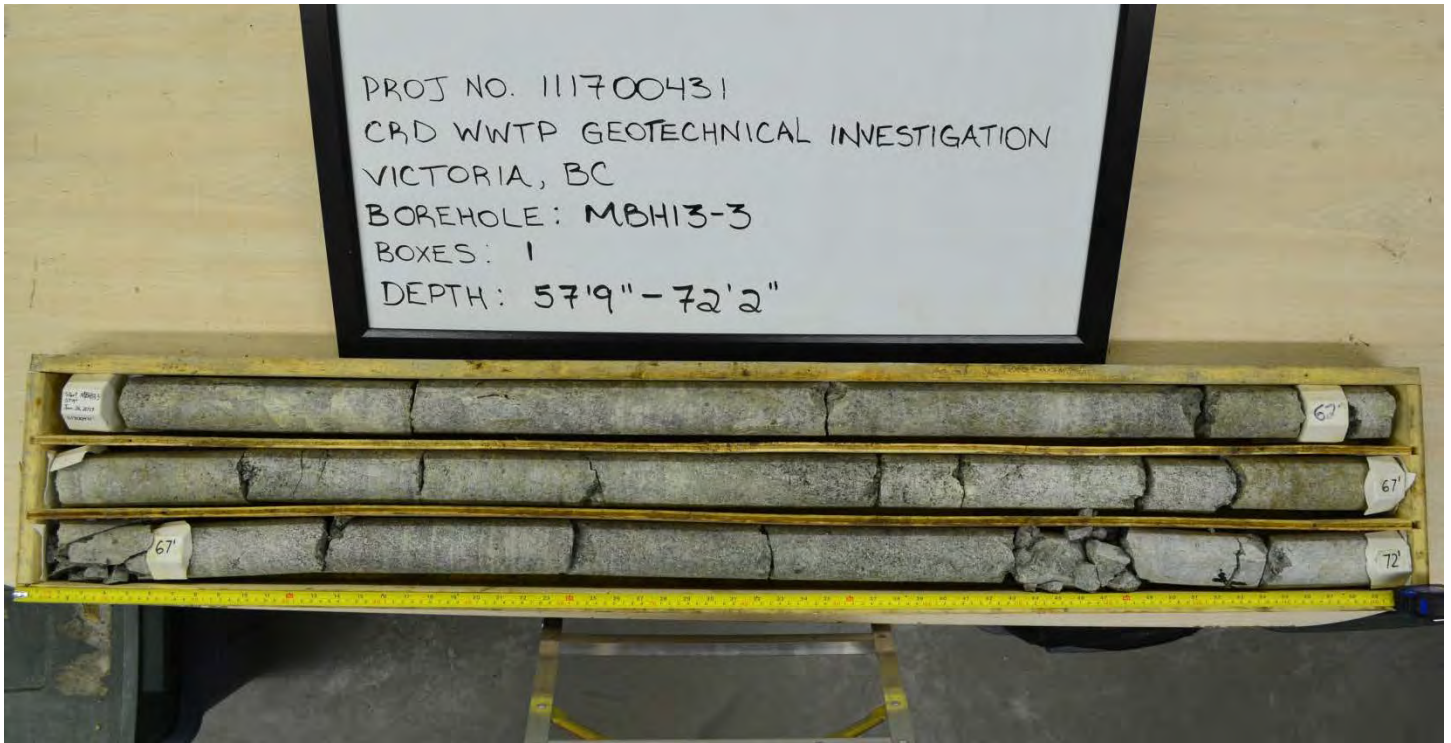 PROJ NO. 111700431
CRD WWTP GEOTECHNICAL INVESTIGATION
VICTORIA, BC
BOREHOLE: MBH13-3
BOXES: 1
DEPTH: 57'9" - 72'2"
62'
67'
67'
72'